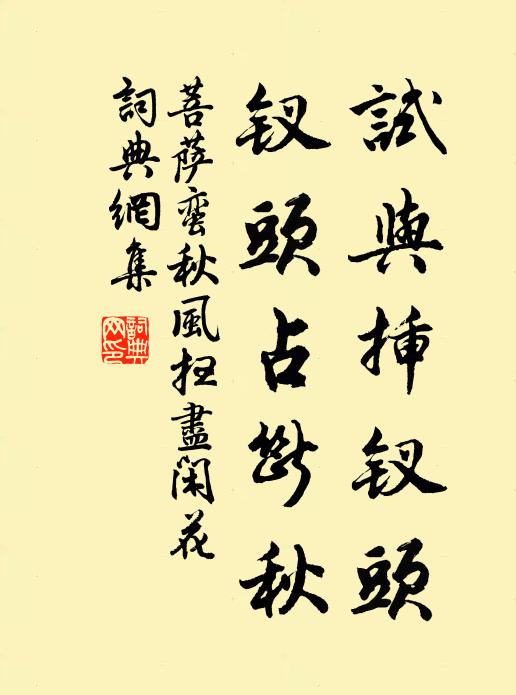 試與插釵頭
釵頭占斷秋
菩薩蠻秋風掃盡閑花
詞典網集
詞典網印